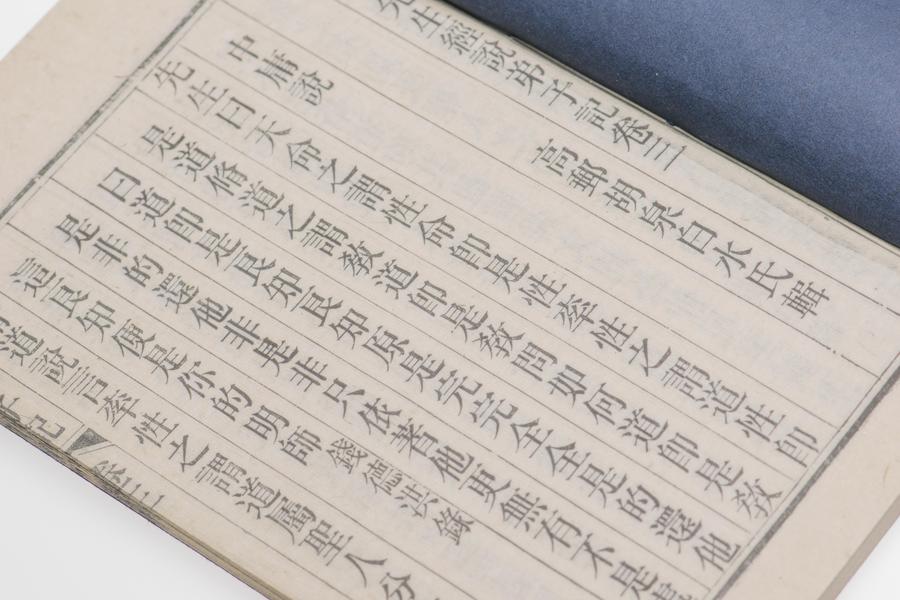 先生經說弟子記卷三
高郵胡泉白水氏輯
中庸說
先生曰天命之謂性命卽是性率性之謂道性卽
是道脩道之謂教道卽是教問如何道卽是教
曰道卽是良知良知原是完完全全是的還他
是非的還他非是非只依著他更無有不是處
這良知便是你的明師 錢德洪錄
道說言率性之謂道屬聖人分
記 卷三